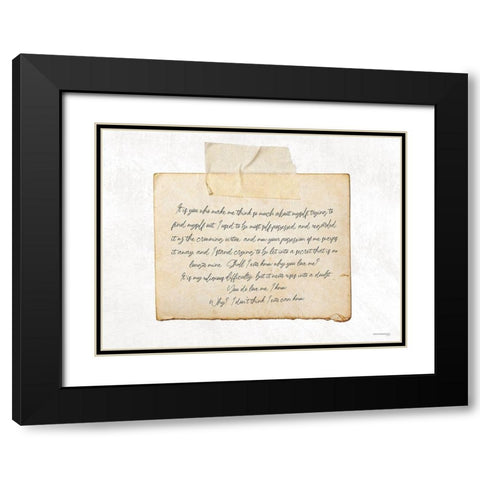 It is you who make me think so much about myself, trying to
find myself out. I used to be most self possessed, and regarded
it as the crowning virtue and now your possession of me sweeps
it away, and I stand crying to be let into a secret that is no
longer mine. Shall I ever know why you love me?
It is my religious difficulty; but it never rises into a doubt.
You do love me, I know.
Why? I don't think I ever can know.